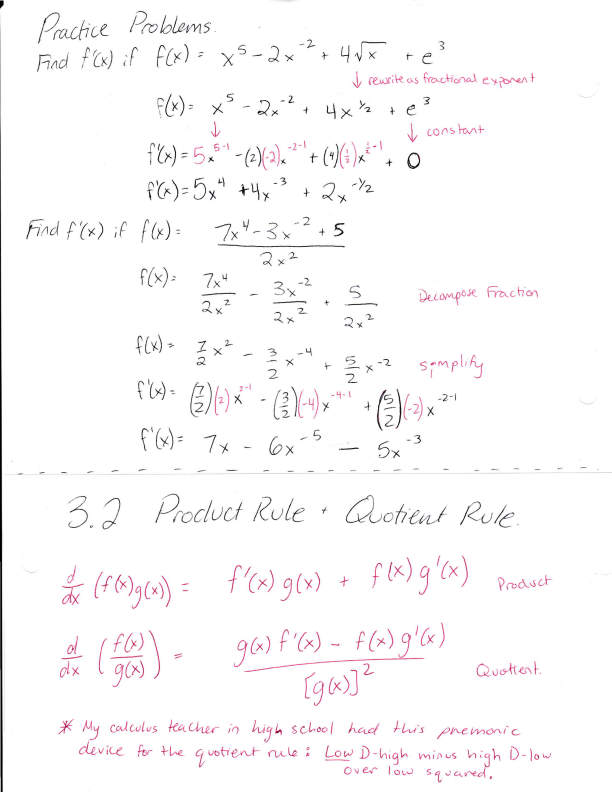 Practice Problems.
Find f'(x) if f(x) = x^5 - 2x^-2 + 4√x + e^3
↓ rewrite as fractional exponent
f(x) = x^5 - 2x^-2 + 4x^1/2 + e^3
↓ ↓ constant
f'(x) = 5x^5-1 - (2)(-2)x^-2-1 + (4)(1/2)x^1/2-1 + 0
f'(x) = 5x^4 + 4x^-3 + 2x^-1/2
Find f'(x) if f(x) = (7x^4 - 3x^-2 + 5)/(2x^2)
f(x) = 7x^4/2x^2 - 3x^-2/2x^2 + 5/2x^2 Decompose Fraction
f(x) = 7/2 x^2 - 3/2 x^-4 + 5/2 x^-2 simplify
f'(x) = (7/2)(2)x^2-1 - (3/2)(-4)x^-4-1 + (5/2)(-2)x^-2-1
f'(x) = 7x - 6x^-5 - 5x^-3
3.2 Product Rule + Quotient Rule.
d/dx (f(x)g(x)) = f'(x)g(x) + f(x)g'(x) Product
d/dx (f(x)/g(x)) = (g(x)f'(x) - f(x)g'(x))/[g(x)]^2 Quotient.
* My calculus teacher in high school had this pnemonic
device for the quotient rule: Low D-high minus high D-low
over low squared.